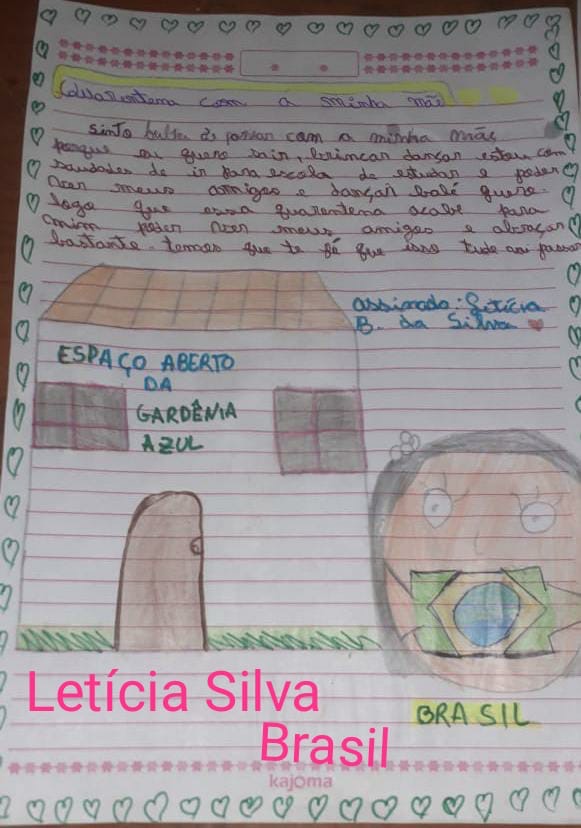 Quarentena com a minha mãe
Sinto falta de passar com a minha mãe
porque eu quero sair, brincar dançar estou com
saudades de ir para escola de estudar e poder
ver meus amigos e dançar balé quero
logo que essa quarentena acabe para
mim poder ver meus amigos e abraçar
bastante. temos que te fé que isso tudo vai passar
assinado: Letícia
B. da Silva
ESPAÇO ABERTO
DA
GARDÊNIA
AZUL
BRASIL
Letícia Silva
Brasil
kajoma